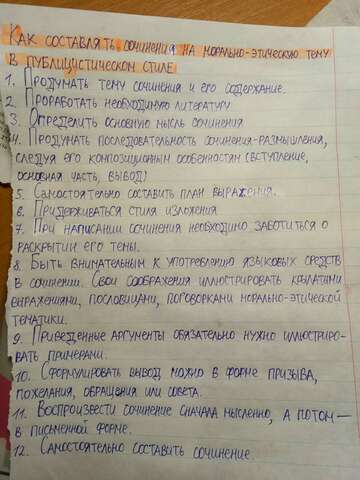 Как составлять сочинения на морально-этическую тему
в публицистическом стиле
1. Продумать тему сочинения и его содержание.
2. Проработать необходимую литературу
3. Определить основную мысль сочинения
4. Продумать последовательность сочинения-размышления,
следуя его композиционным особенностям (вступление,
основная часть, вывод)
5. Самостоятельно составить план выражения.
6. Придерживаться стиля изложения
7. При написании сочинения необходимо заботиться о
раскрытии его темы.
8. Быть внимательным к употреблению языковых средств
в сочинении. Свои соображения иллюстрировать крылатыми
выражениями, пословицами, поговорками морально-этической
тематики.
9. Приведенные аргументы обязательно нужно иллюстриро-
вать примерами.
10. Сформулировать вывод можно в форме призыва,
пожелания, обращения или совета.
11. Воспроизвести сочинение сначала мысленно, а потом —
в письменной форме.
12. Самостоятельно составить сочинение.